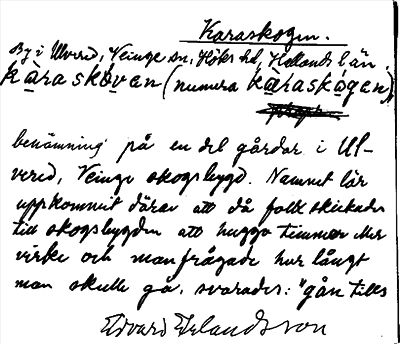 Karaskogen.
By i Ulvered, Veinge sn, Höks hd, Hallands län.
kàraskóvan (numera kàraskógen)
benämning på en del gårdar i Ul-
vered, Veinge skogsbygd. Namnet lär
uppkommit därav att då folk skickades
till skogsbygden att hugga timmer eller
virke och man frågade hur långt
man skulle gå, svarades: "gån tills
Edvard Erlandsson